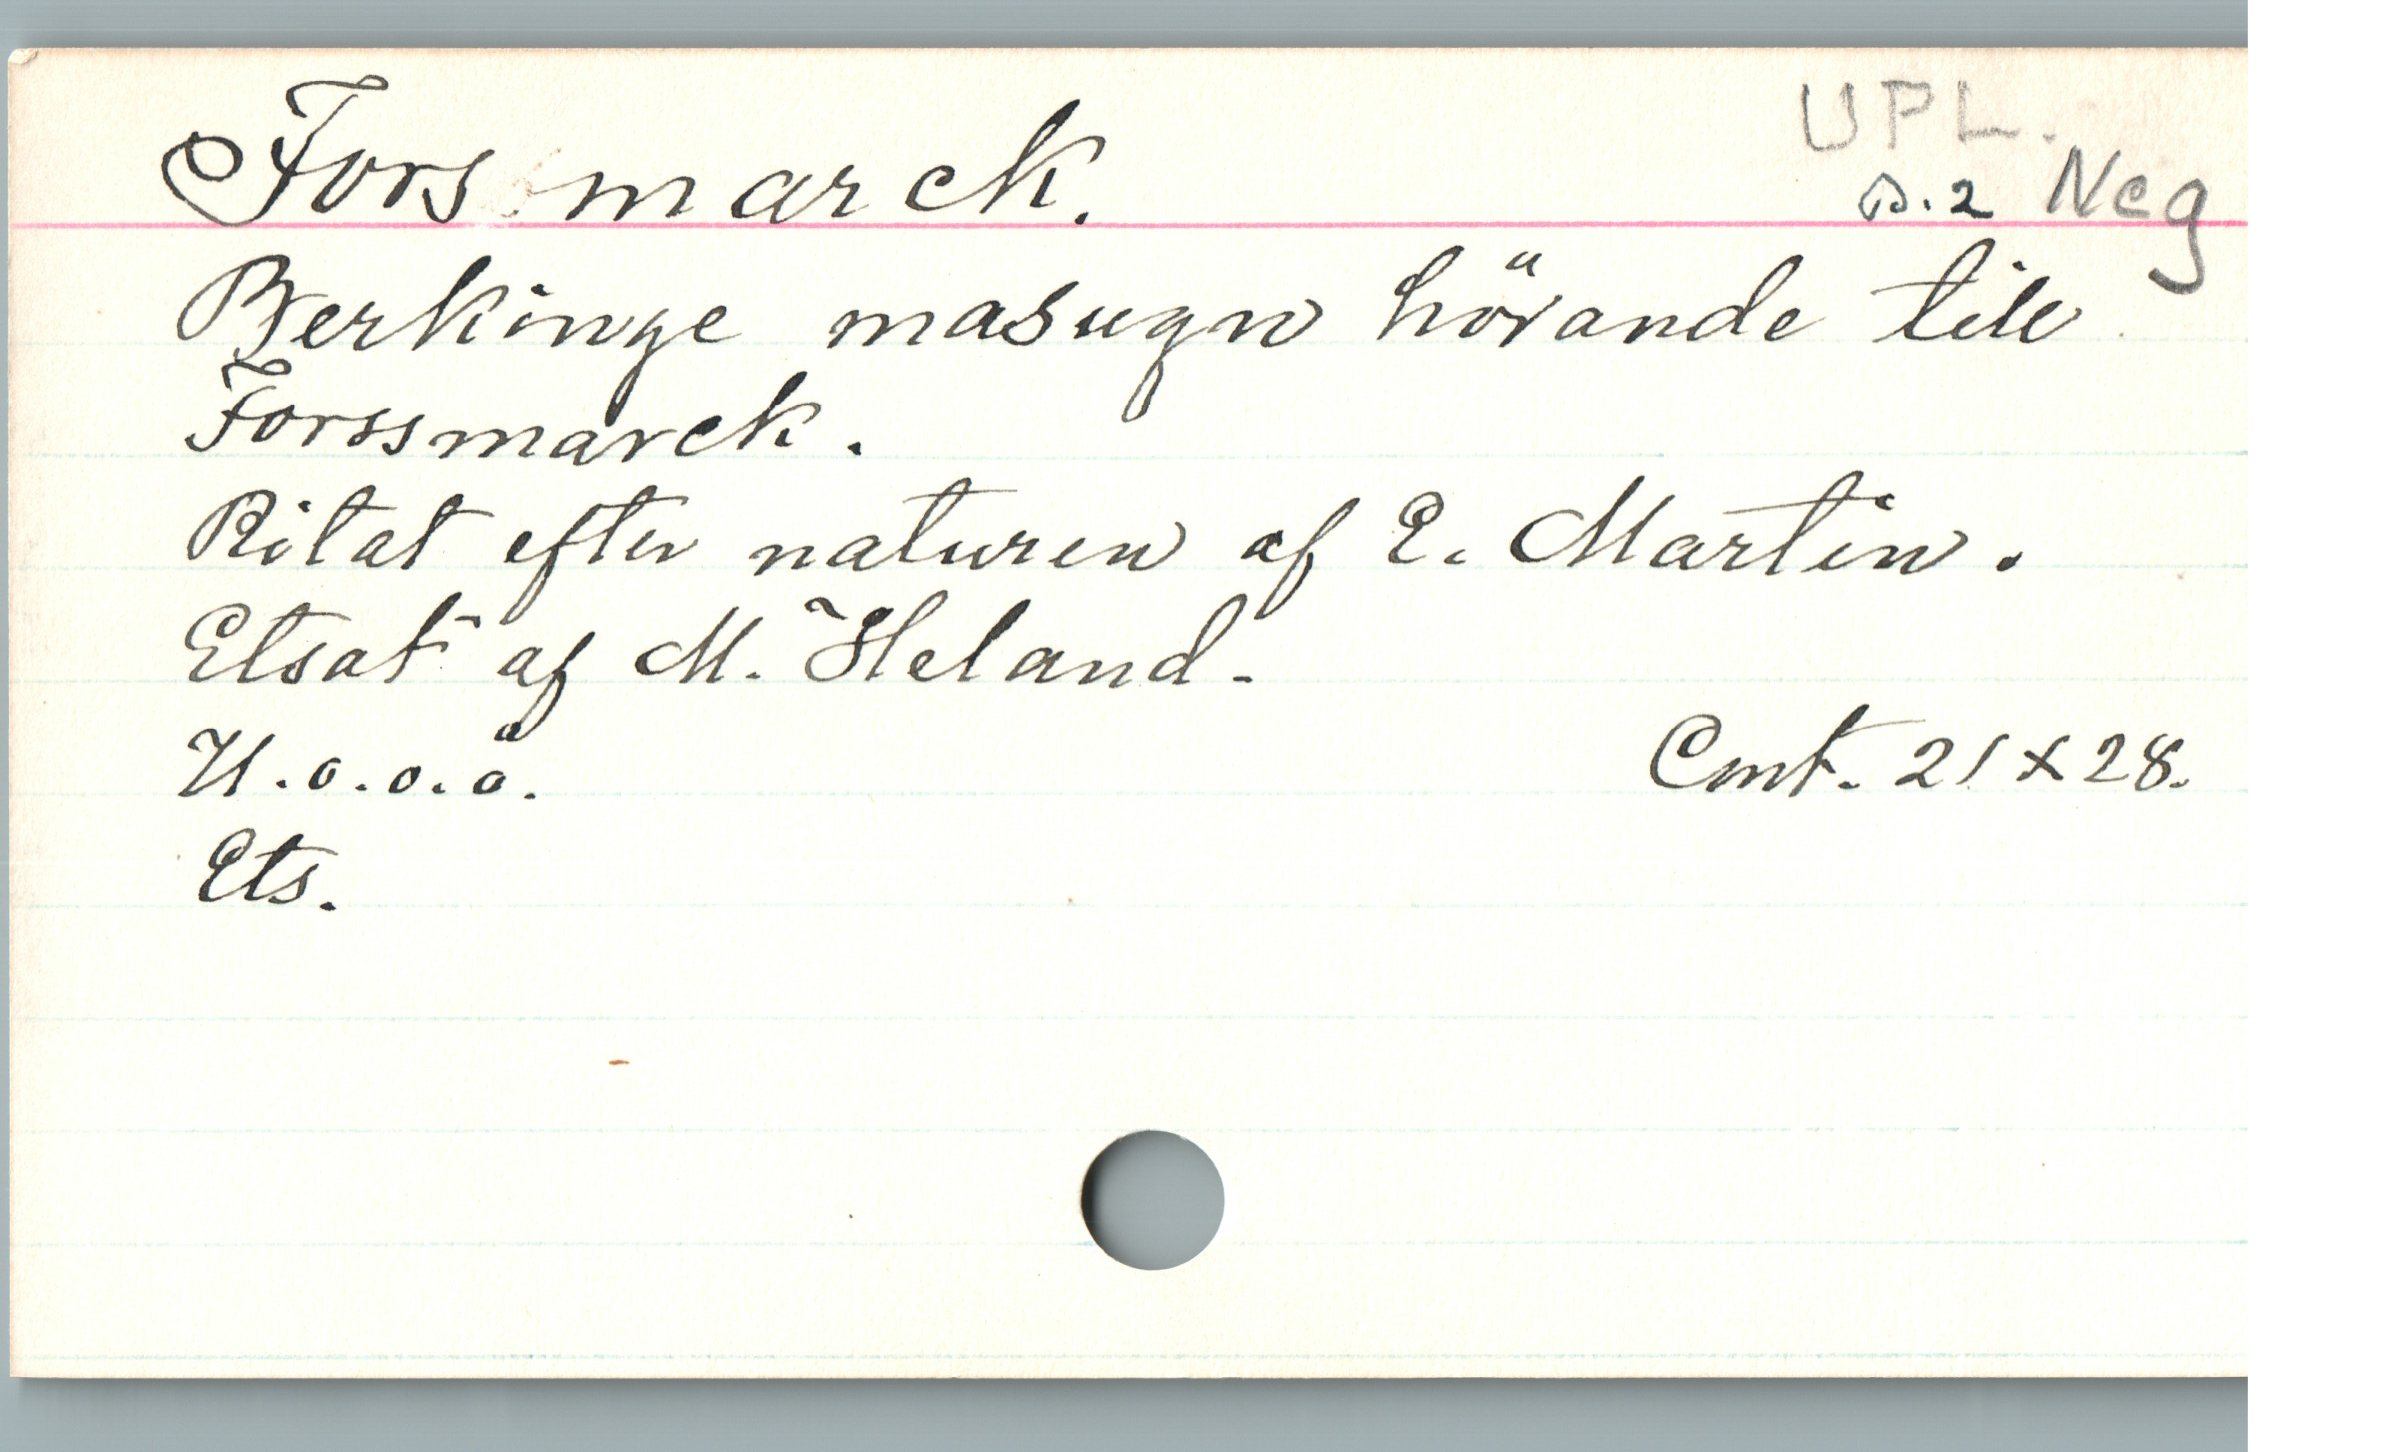 UPL.
Forsmarck. B.2 Neg
Berkinge masugn hörande till
Forssmarck.
Ritat efter naturen af E. Martin.
Etsat af M. Heland.
U.o.o.å. Cmt. 21 x 28.
Ets.